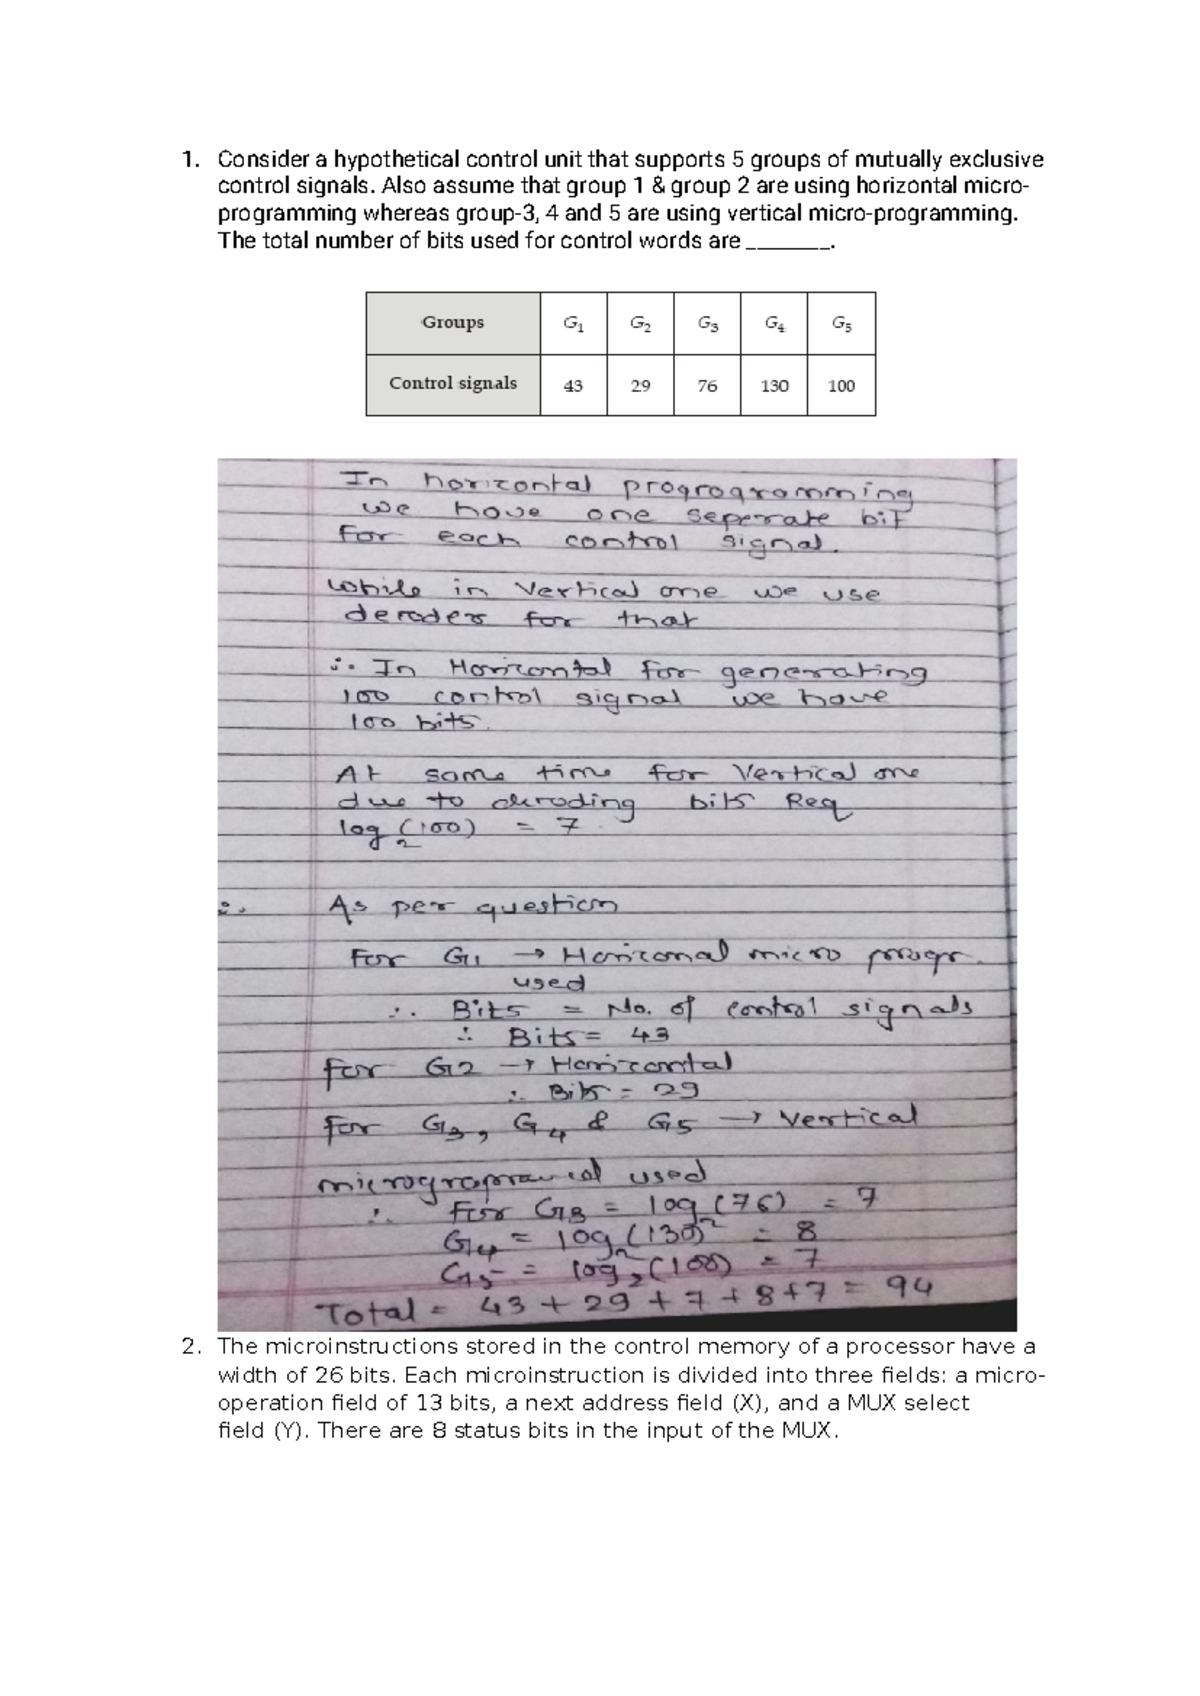 1. Consider a hypothetical control unit that supports 5 groups of mutually exclusive
control signals. Also assume that group 1 & group 2 are using horizontal micro-
programming whereas group-3, 4 and 5 are using vertical micro-programming.
The total number of bits used for control words are _______.
Groups G1 G2 G3 G4 G5
Control signals 43 29 76 130 100
In horizontal progrogramming
we have one seperate bit
for each control signal.
while in vertical one we use
decoder for that
∴ In Horizontal for generating
100 control signal we have
100 bits.
At same time for vertical one
due to decoding bits Req
log2(100) = 7.
∴ As per question
For G1 → Horizonal micro progr.
used
∴ Bits = No. of control signals
∴ Bits = 43
for G2 → Horizontal
∴ Bits = 29
for G3, G4 & G5 → vertical
used
∴ For G3 = log2(76) = 7
G4 = log2(130) = 8
G5 = log2(100) = 7
Total = 43 + 29 + 7 + 8 + 7 = 94
2. The microinstructions stored in the control memory of a processor have a
width of 26 bits. Each microinstruction is divided into three fields: a micro-
operation field of 13 bits, a next address field (X), and a MUX select
field (Y). There are 8 status bits in the input of the MUX.